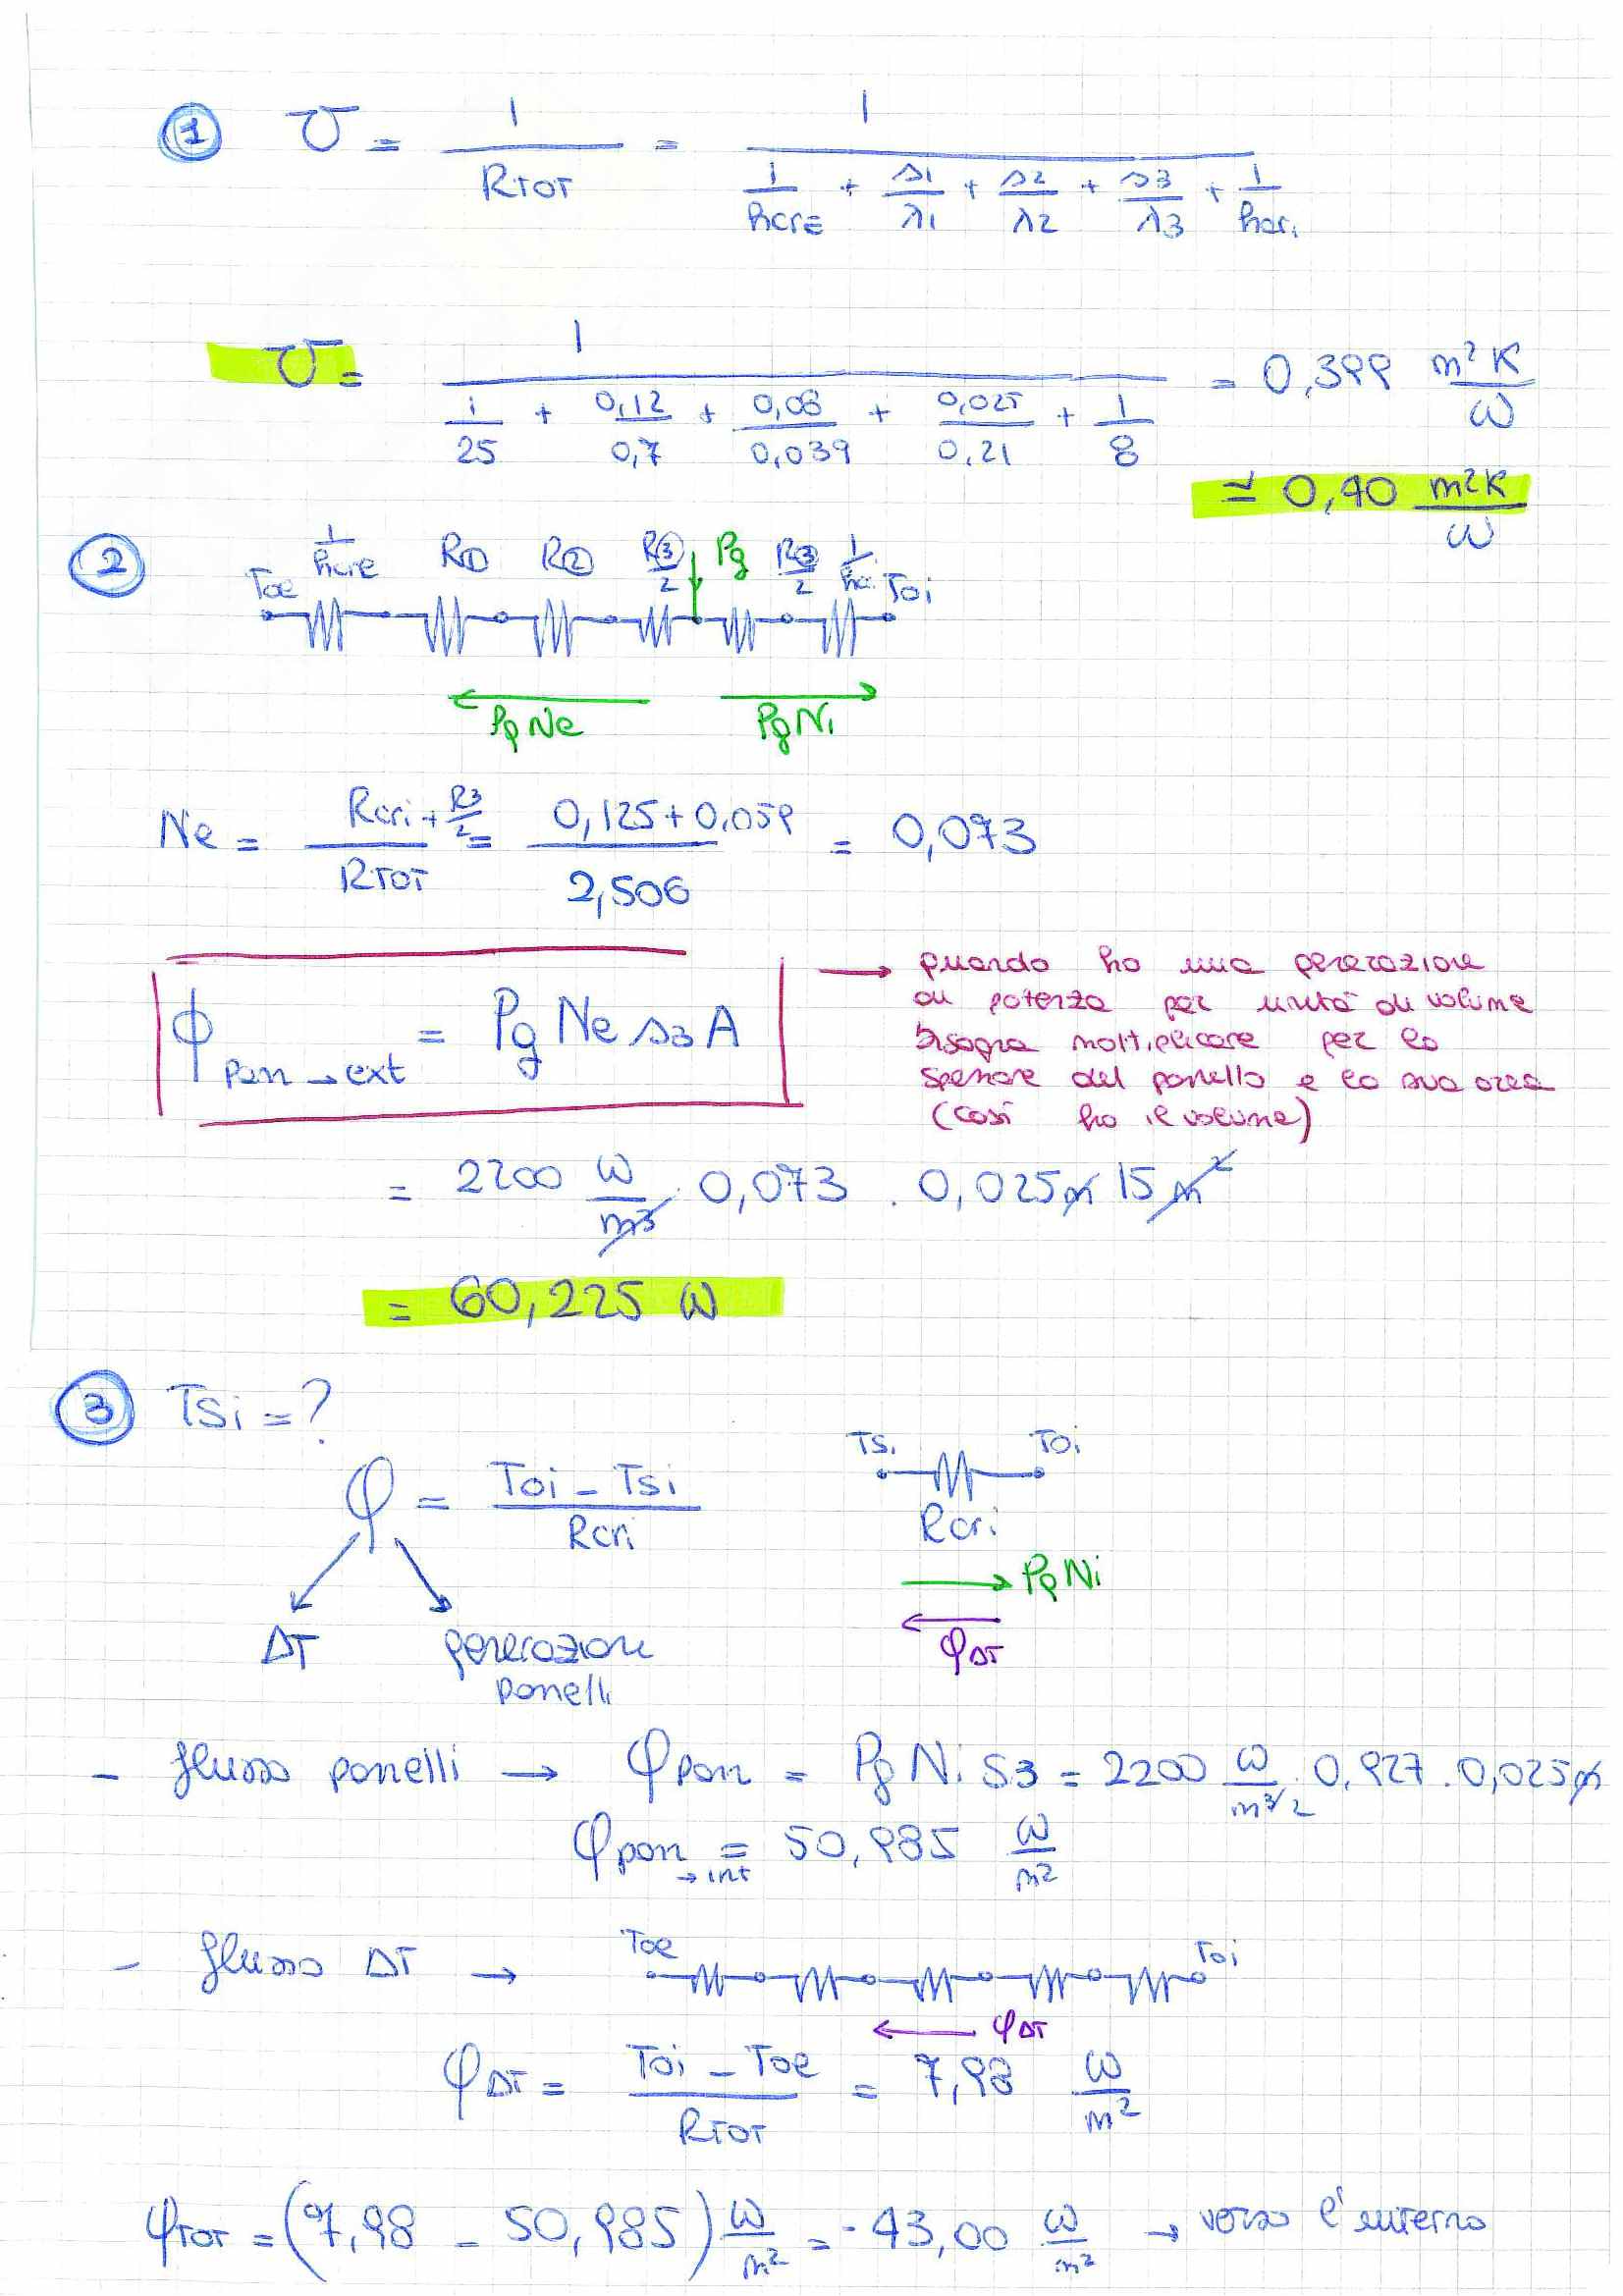 ① U = 1 / RTOT = 1 / (1/hcre + s1/λ1 + s2/λ2 + s3/λ3 + 1/hcri)
U = 1 / (1/25 + 0,12/0,7 + 0,08/0,039 + 0,025/0,21 + 1/8) = 0,399 m²K/W
≃ 0,40 m²K/W
② Toe 1/hcre R① R② R③/2 Pg R③/2 1/hcri Toi
PgNe PgNi
Ne = (Rcri + R3/2) / RTOT = (0,125 + 0,059) / 2,506 = 0,073
ϕ pan → ext = Pg Ne s3 A
→ quando ho una generazione
di potenza per unità di volume
bisogna moltiplicare per lo
spessore del pannello e la sua area
(così ho il volume)
= 2200 W/m³ · 0,073 · 0,025m 15 m²
= 60,225 W
③ Tsi = ?
Tsi Toi
φ = (Toi - Tsi) / Rcri
Rcri
PgNi
φΔT
ΔT generazione
panelli
- flusso panelli → φpan = Pg Ni s3 = 2200 W/m³ ² · 0,927 · 0,025m
φpan → int = 50,985 W/m²
- flusso ΔT → Toe Toi
φΔT
φΔT = (Toi - Toe) / RTOT = 7,98 W/m²
φTOT = (7,98 - 50,985) W/m² = - 43,00 W/m² → verso l'interno